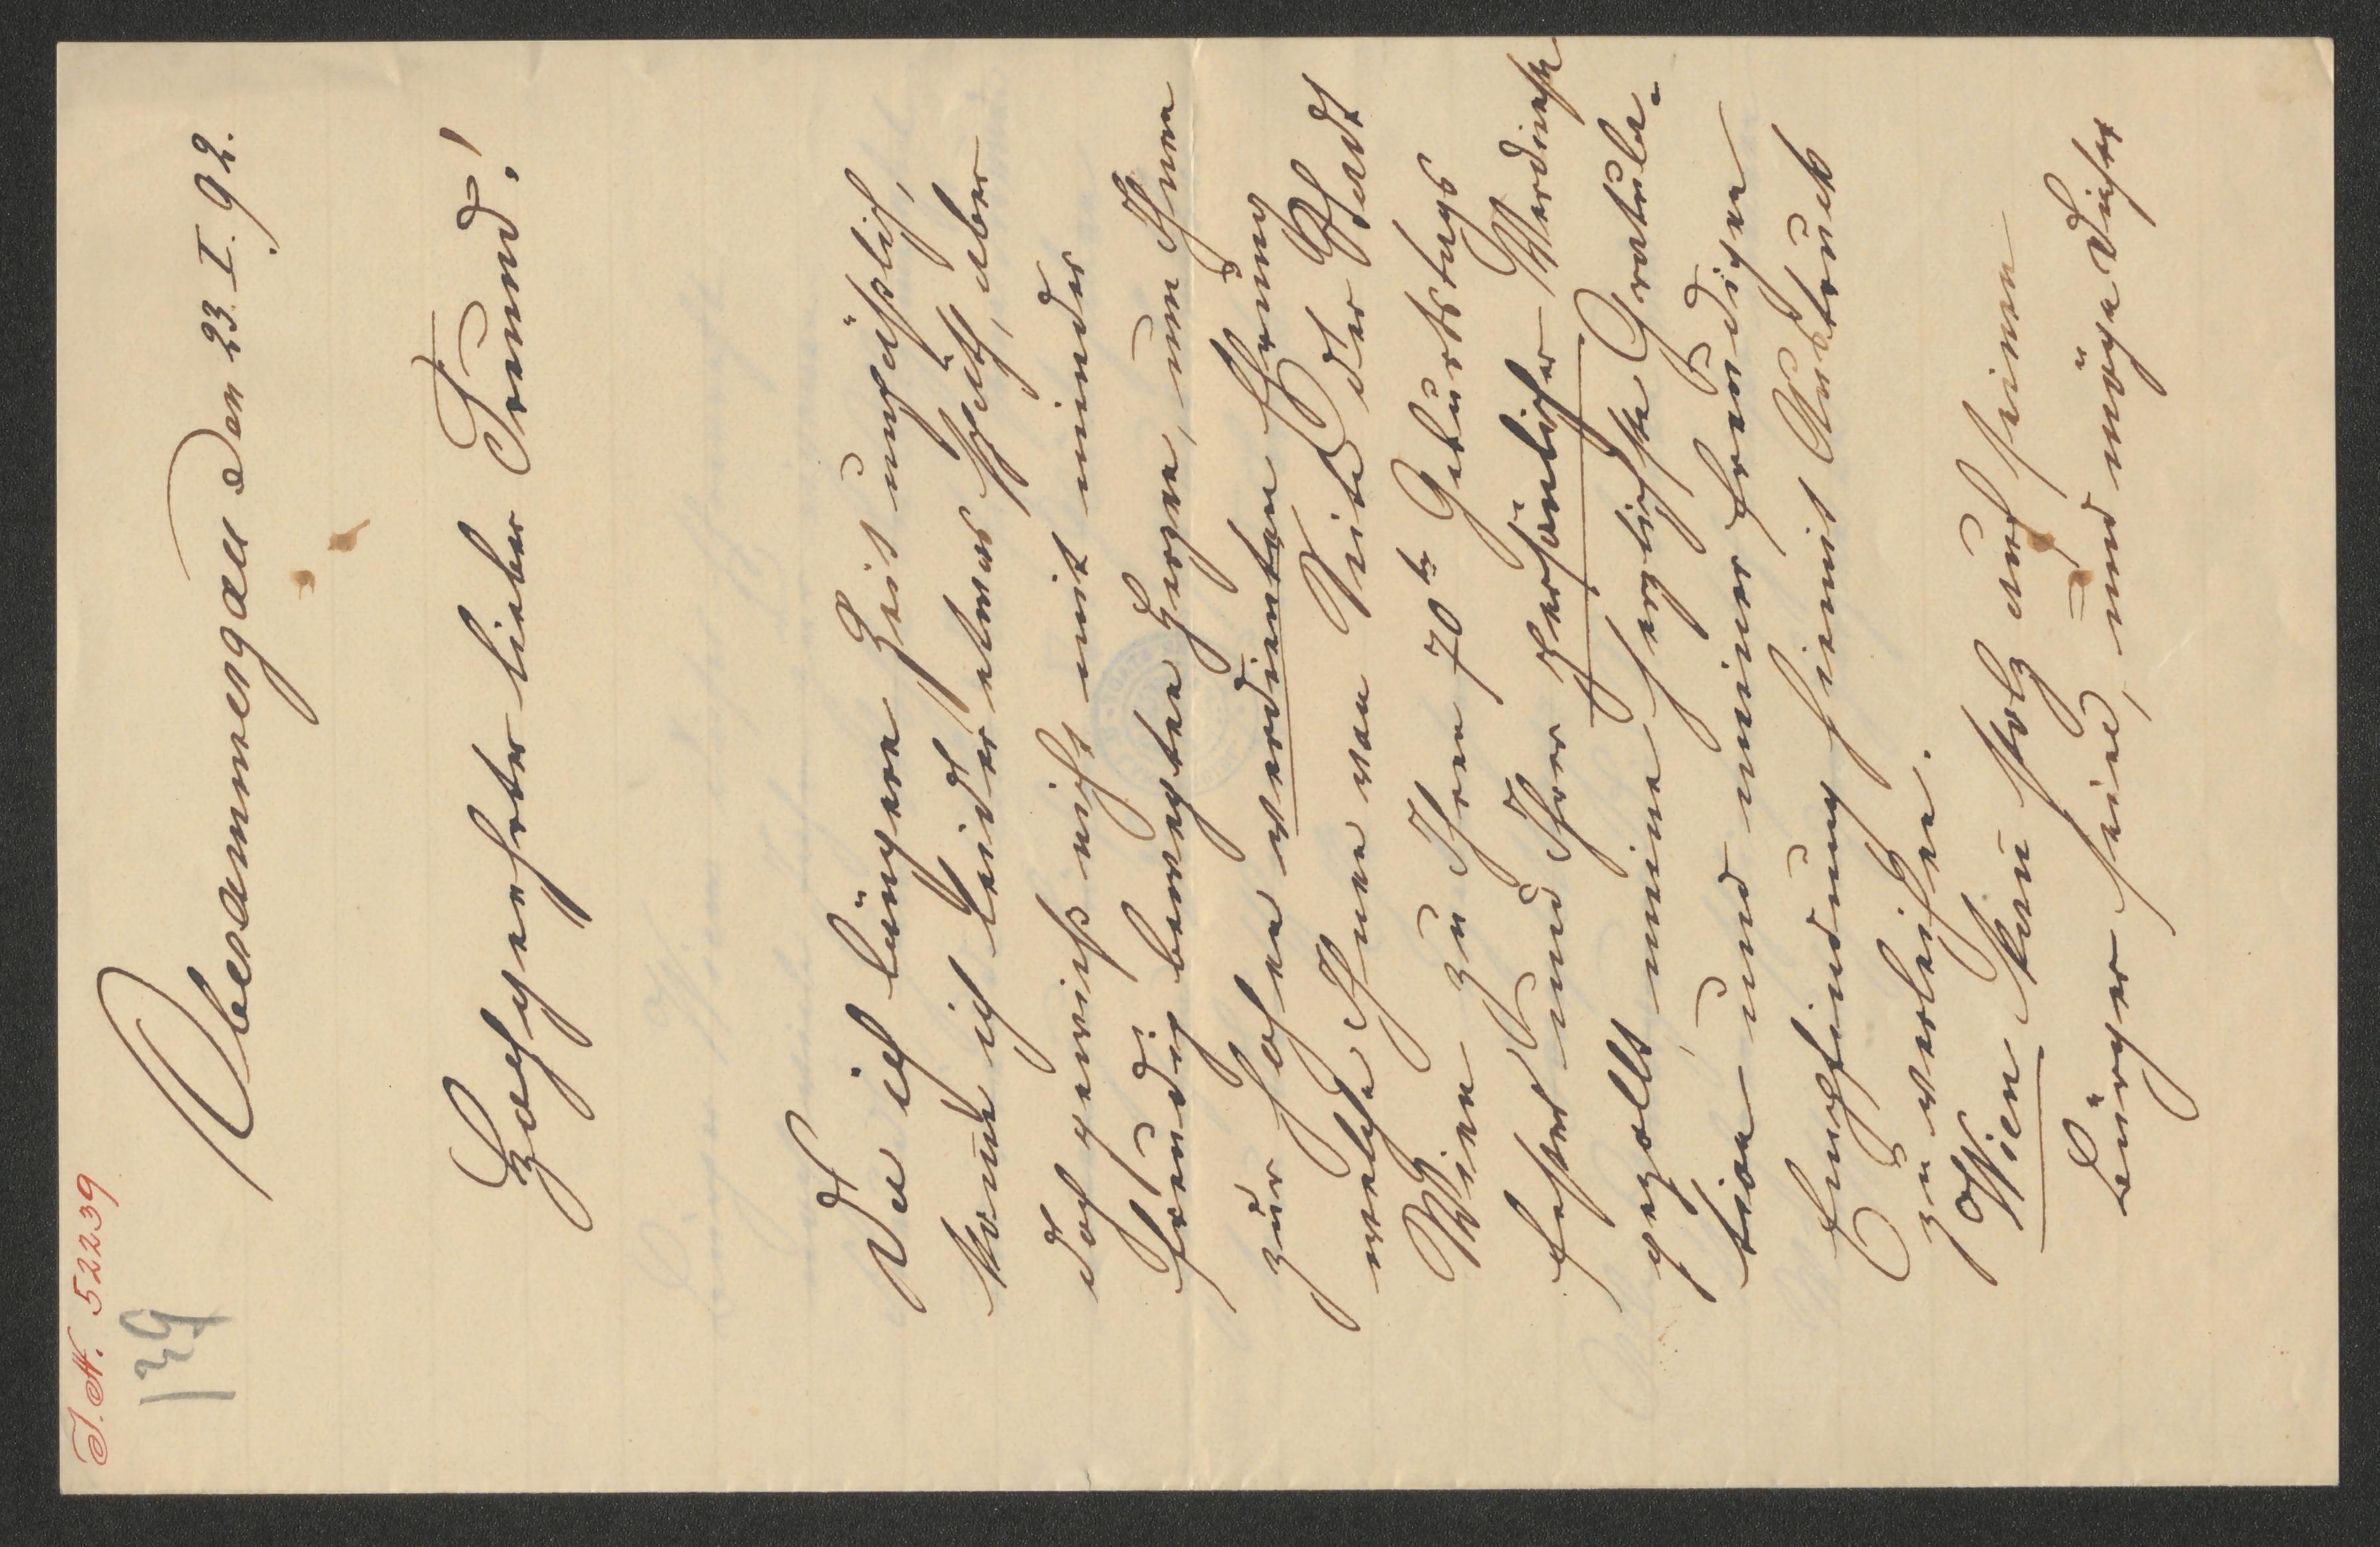 I.N. 52239
139
Oberammergau den 23. I. 92.
Hochgeehrter lieber Freund!
Da ich längere Zeit unpäßlich,
komme ich leider etwas spät, aber
doch gewiß nicht mit minder
freudig bewegten Herzen, um Ihnen
zur hohen verdienten Ehrung
welche Ihnen von Seite der Stadt
Wien zu Ihren 70ten Geburtstags
feste und Ihrer persönlicher Verdienste
gezollt meine herzlichste Gratula-
tion und meiner freudigen
Empfindung hiemit Ausdruck
zu verleihen.
Wien kann stolz auf seinen
Bürger sein, und möge dieser